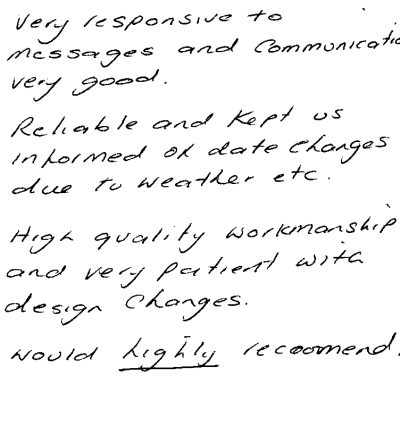 Very responsive to
messages and communicatio
very good.
Reliable and kept us
informed of date changes
due to weather etc.
High quality workmanship
and very patient with
design changes.
Would highly recoomend.